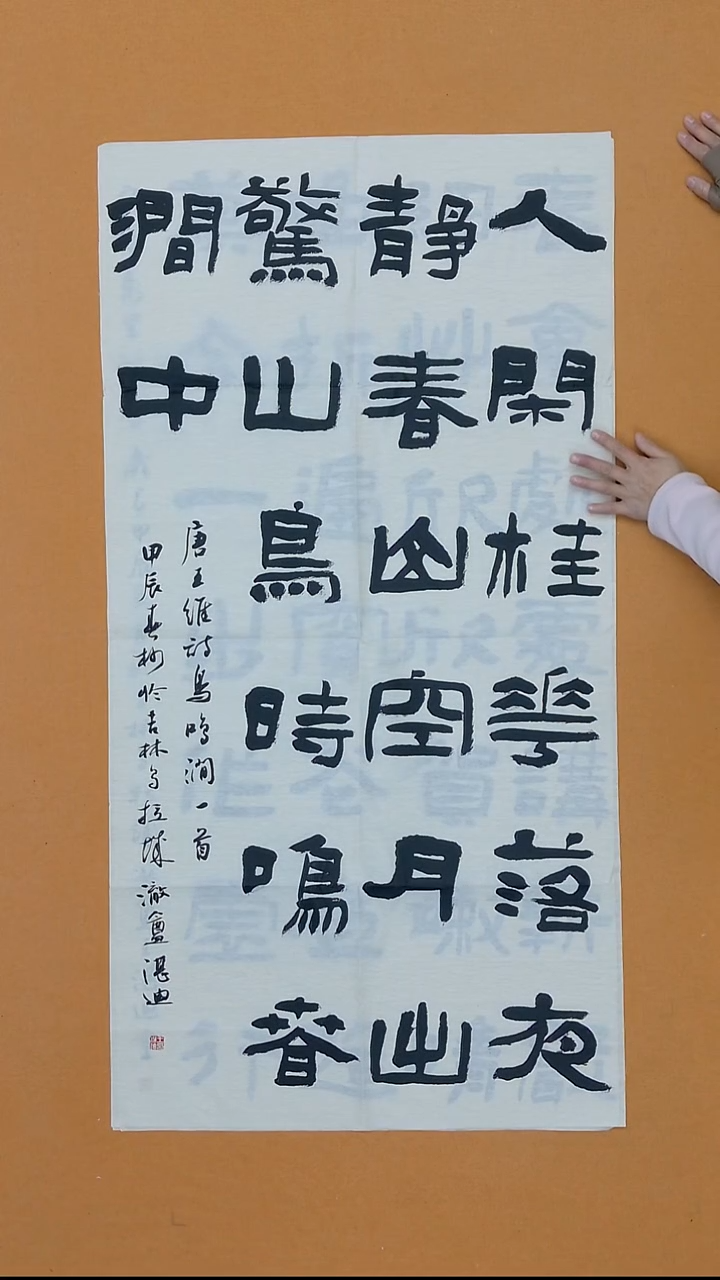 人閑桂華落夜
靜春山空月出
驚山鳥時鳴春
澗中
唐王維詩鳥鳴澗一首
甲辰春杪於吉林烏拉城澈盦湛迪